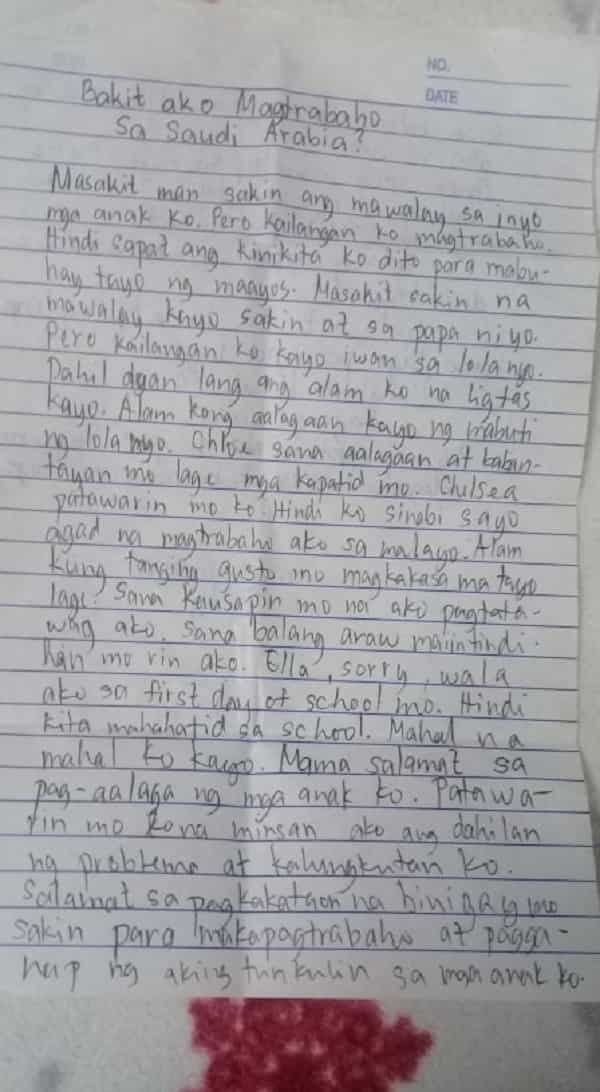 NO.
DATE
Bakit ako Magtrabaho
Sa Saudi Arabia?
Masakit man sakin ang mawalay sa inyo
mga anak ko. Pero kailangan ko magtrabaho.
Hindi sapat ang kinikita ko dito para mabu-
hay tayo ng maayos. Masakit sakin na
mawalay kayo sakin at sa papa niyo.
Pero kailangan ko kayo iwan sa lola nyo.
Dahil dyan lang ang alam ko na ligtas
kayo. Alam kong aalagaan kayo ng mabuti
ng lola nyo. Chloe sana aalagaan at baban-
tayan mo lage mga kapatid mo. Chelsea
patawarin mo ko. Hindi ko sinabi sayo
agad na magtrabaho ako sa malayo. Alam
kung tanging gusto mo magkakasama tayo
lage. Sana kausapin mo na ako pagtata-
wag ako. Sana balang araw maiintindi-
han mo rin ako. Ella, sorry, wala
ako sa first day of school mo. Hindi
kita mahahatid sa school. Mahal na
mahal ko kayo. Mama salamat sa
pag-aalaga ng mga anak ko. Patawa-
rin mo kona minsan ako ang dahilan
ng problema at kalungkutan ko.
Salamat sa pagkakataon na binigay mo
sakin para makapagtrabaho at pagga-
nap ng aking tunkulin sa mga anak ko.